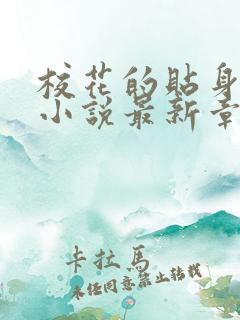 校花的貼身
小說最新章
卡拉馬
未经同意禁止转载